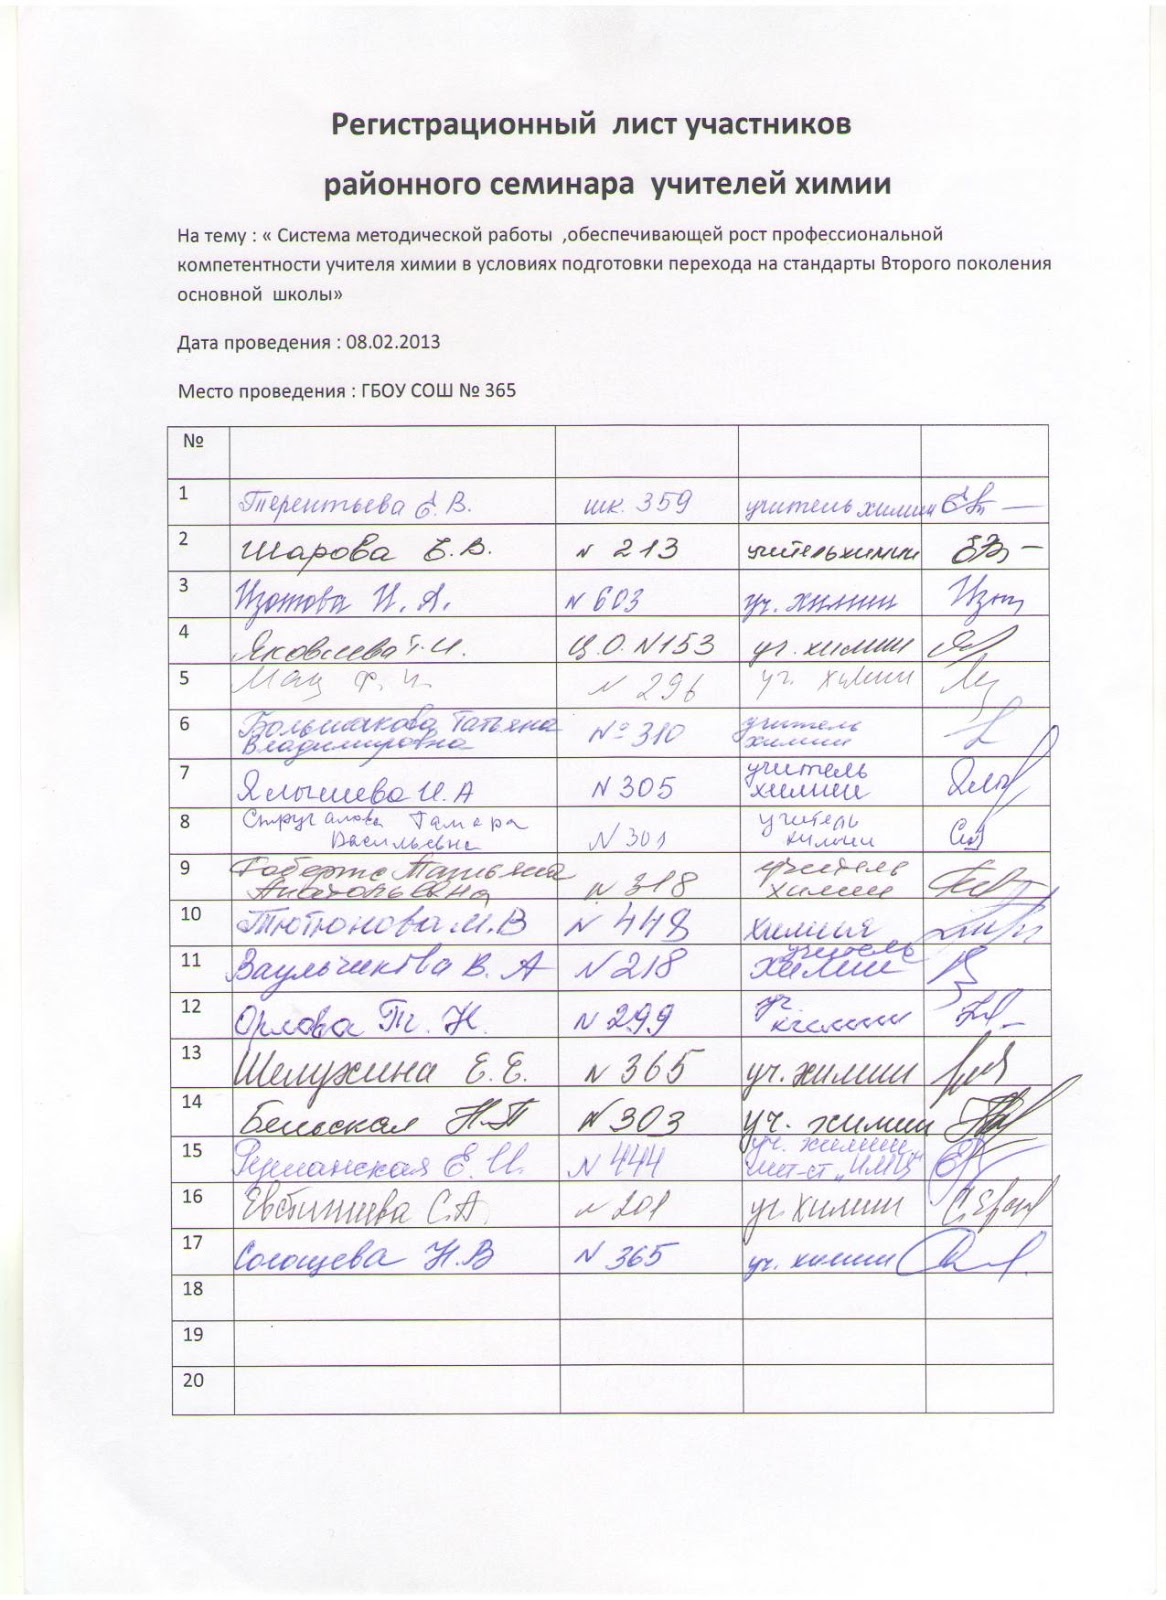 Регистрационный лист участников
районного семинара учителей химии
На тему : « Система методической работы ,обеспечивающей рост профессиональной
компетентности учителя химии в условиях подготовки перехода на стандарты Второго поколения
основной школы»
Дата проведения : 08.02.2013
Место проведения : ГБОУ СОШ № 365
№
1 Терентьева Е.В. шк. 359 учитель химии
2 Шарова Е.В. N 213 учитель химии
3 Изотова И.А. N 603 уч. химии
4 Яковлева Т.И. Ц.О. N153 уч. химии
5 N 296 уч. химии
6 Большакова Татьяна
Владимировна № 310 учитель
химии
7 Ялышева И.А N 305 учитель
химии
8 Стругалова Тамара
Васильевна N 301 учитель
химии
9 Татьяна
Анатольевна N 318 учитель
химии
10 Тютюнова М.В N 448 химия
учитель
11 Ваульчикова В.А N 218 химии
12 Орлова Т. Н. N 299 уч.
химии
13 Шелухина Е.Е. N 365 уч. химии
14 Бельская Н.П N 303 уч. химии
15 Е.И. N 444 уч. химии
мет-ст "ИМЦ"
16 С.А. N 201 уч. химии
17 Н.В N 365 уч. химии
18
19
20